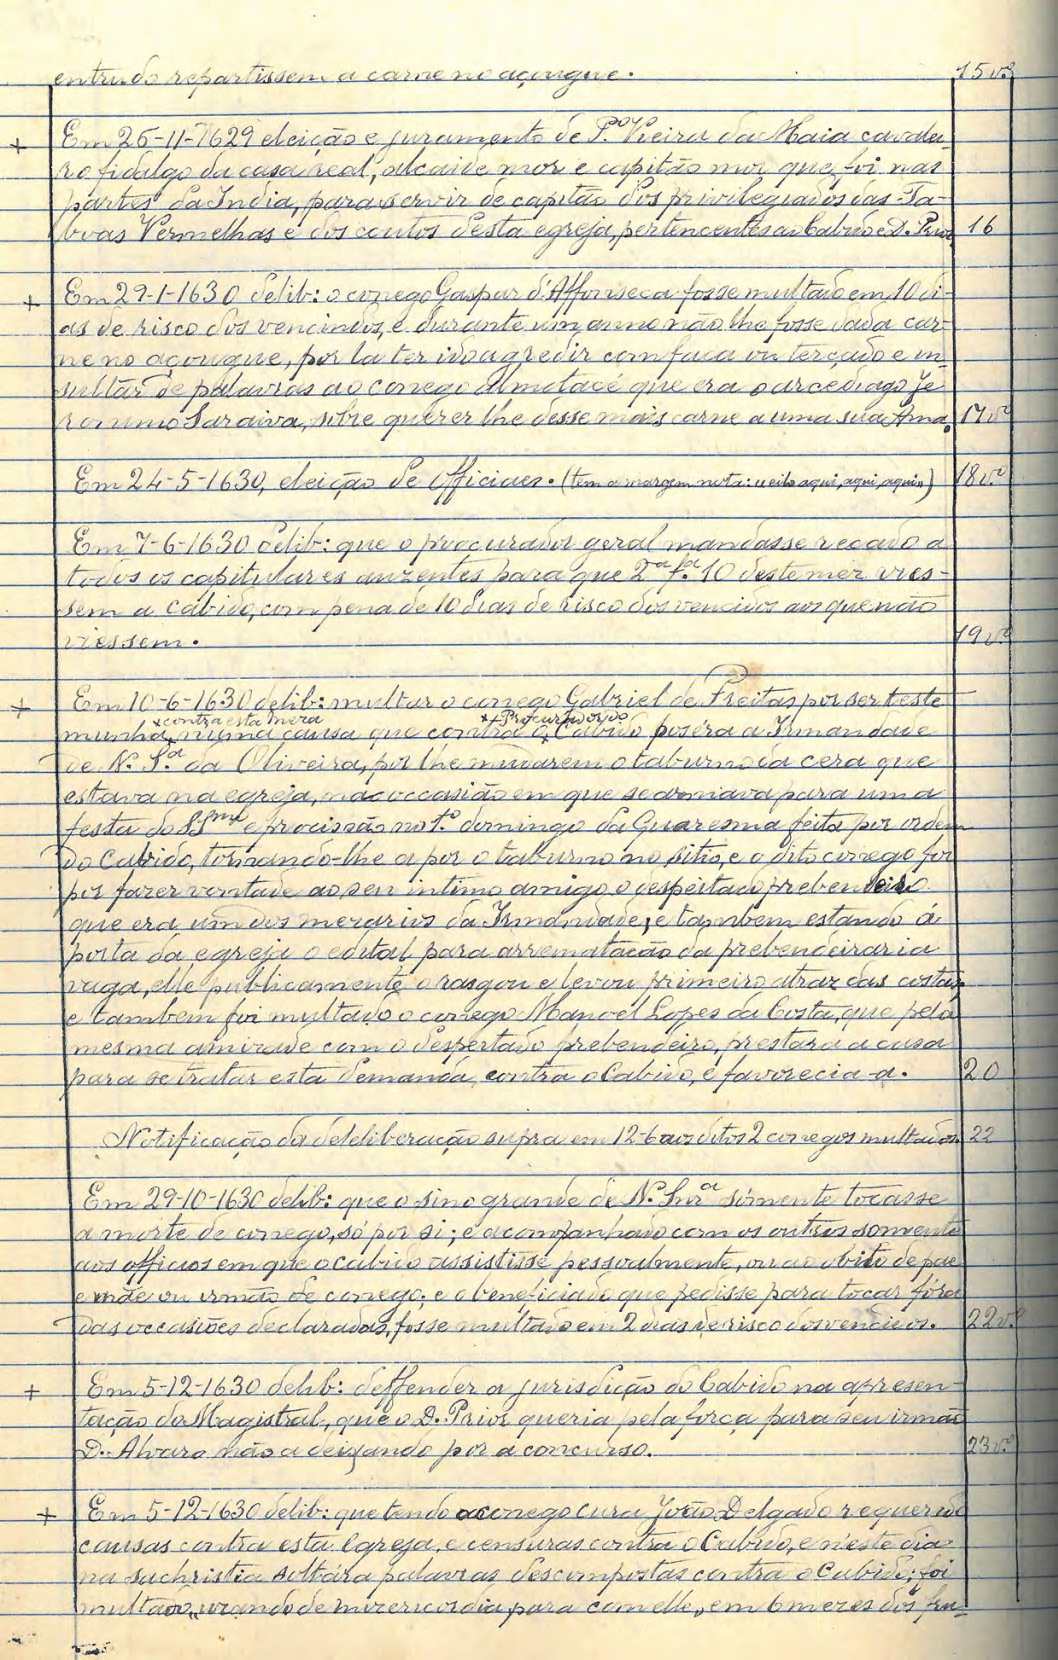 entrudo repartissem a carne no açougue. 15 v.º
+ Em 26-11-1629 eleição e juramento de P.º Vieira da Maia cavalei-
ro fidalgo da casa real, alcaide mor e capitão mor que foi nas
partes da India, para servir de capitão dos privilegiados das Ta-
boas Vermelhas e dos coutos desta egreja, pertencentes ao Cabido e D. Prior 16
+ Em 29-1-1630 delib: o conego Gaspar d'Affonseca fosse multado em 10 di-
as de risco dos vencidos, e durante um anno não lhe fosse dada car-
ne no açougue, por la ter ido agredir com faca ou terçado e in-
sultar de palavras ao conego almotacé que era o arcediago Je-
ronimo Saraiva, sobre querer lhe desse mais carne a uma sua Ama. 17 v.º
Em 24-5-1630, eleição de officiaes. (tem a margem nota: aqui, aqui, aqui) 18 v.º
Em 7-6-1630 delib: que o procurador geral mandasse recado a
todos os capitulares auzentes para que 2.ª f.ª 10 deste mez vies-
sem a Cabido, com pena de 10 dias de risco dos vencidos aos que não
viessem. 19 v.º
+ Em 10-6-1630 delib: multar o conego Gabriel de Freitas por ser teste
x contra esta mera x Procurador do
munha, x numa causa que contra o x Cabido poséra a Irmandade
de N. S.ª da Oliveira, por lhe mudarem o taburno da cera que
estava na egreja, na occasião em que se armava para uma
festa do SS.mo e procissão no 1.º domingo da Quaresma feita por ordem
do Cabido, tornando-lhe a por o taburno no sitio, e o dito conego foi
por fazer vontade ao seu intimo amigo o despeitado prebendeiro
que era um dos mezarios da Irmandade; e tambem estando á
porta da egreja o edital para arrematação da prebendeiraria
vaga, elle publicamente o rasgou e levou primeiro atraz das costas
e tambem foi multado o conego Manoel Lopes da Costa, que pela
mesma amizade com o despertado prebendeiro, prestara a casa
para se tratar esta demanda contra o Cabido, e favorecia-a. 20
Notificação da deleliberação supra em 12-6 aos ditos 2 conegos multados. 22
Em 29-10-1630 delib: que o sino grande de N. Snr.ª sómente tocasse
a morte de conego, só por si; e acompanhado com os outros somente
aos officios em que o Cabido assistisse pessoalmente, ou ao obito de pae
e mãe ou irmão de conego; e o beneficiado que pedisse para tocar fóra
das occasiões declaradas, fosse multado em 2 dias de risco dos vencidos. 22 v.º
+ Em 5-12-1630 delib: deffender a jurisdição do Cabido na apresen-
tação da Magistral, que o D. Prior queria pela força para seu irmão
D. Alvaro não a deixando por a concurso. 23 v.º
+ Em 5-12-1630 delib: que tendo o conego cura João Delgado requerido
causas contra esta Egreja, e censuras contra o Cabido, e n'este dia
na sachristia soltára palavras descompostas contra o Cabido; foi
multado, uzando de mizericordia para com elle, em 6 mezes dos fru-